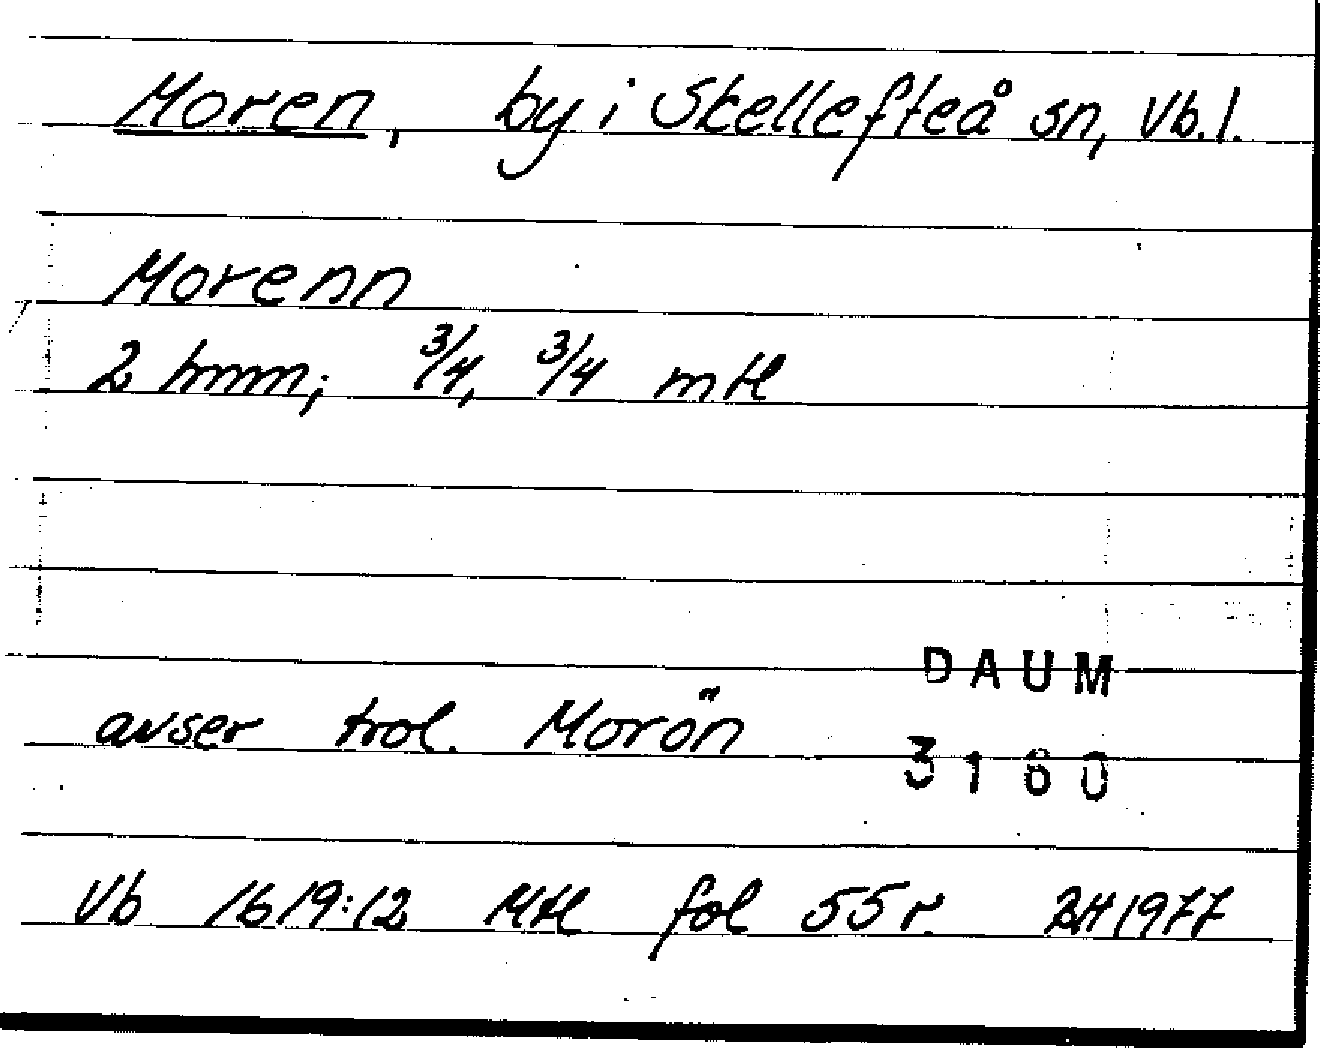 Moren, by i Skellefteå sn, Vb. l.
Morenn
2 hmm; 3/4, 3/4 mtl
DAUM
avser trol. Morön
3160
Vb 1619:12 Mtl fol 55 r. BH 1977